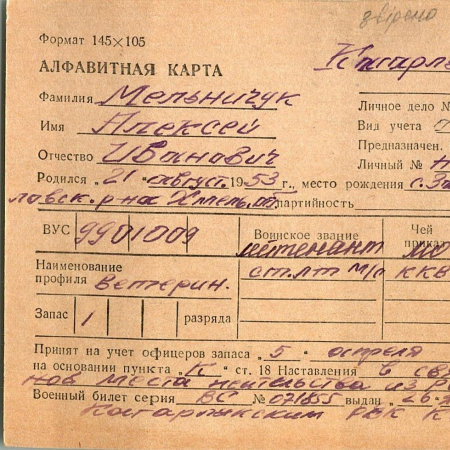 звірено
Формат 145×105
Кагарл
АЛФАВИТНАЯ КАРТА
Фамилия Мельничук
Личное дело №
Имя Алексей
Вид учета
Предназначен.
Отчество Иванович
Личный №
Родился „21" август 1953 г., место рождения с. За
лавск. р-на Хмельн. обл партийность
ВУС 9901009
Воинское звание
Чей
приказ
лейтенант
Наименование
профиля Ветерин.
ст. л-т м/с ККВ
Запас 1 разряда
Принят на учет офицеров запаса „5" апреля
на основании пункта „К" ст. 18 Наставления в свя
места жительства из
Военный билет серия ВС № 071855 выдан „26"
Кагарлыкским РВК К